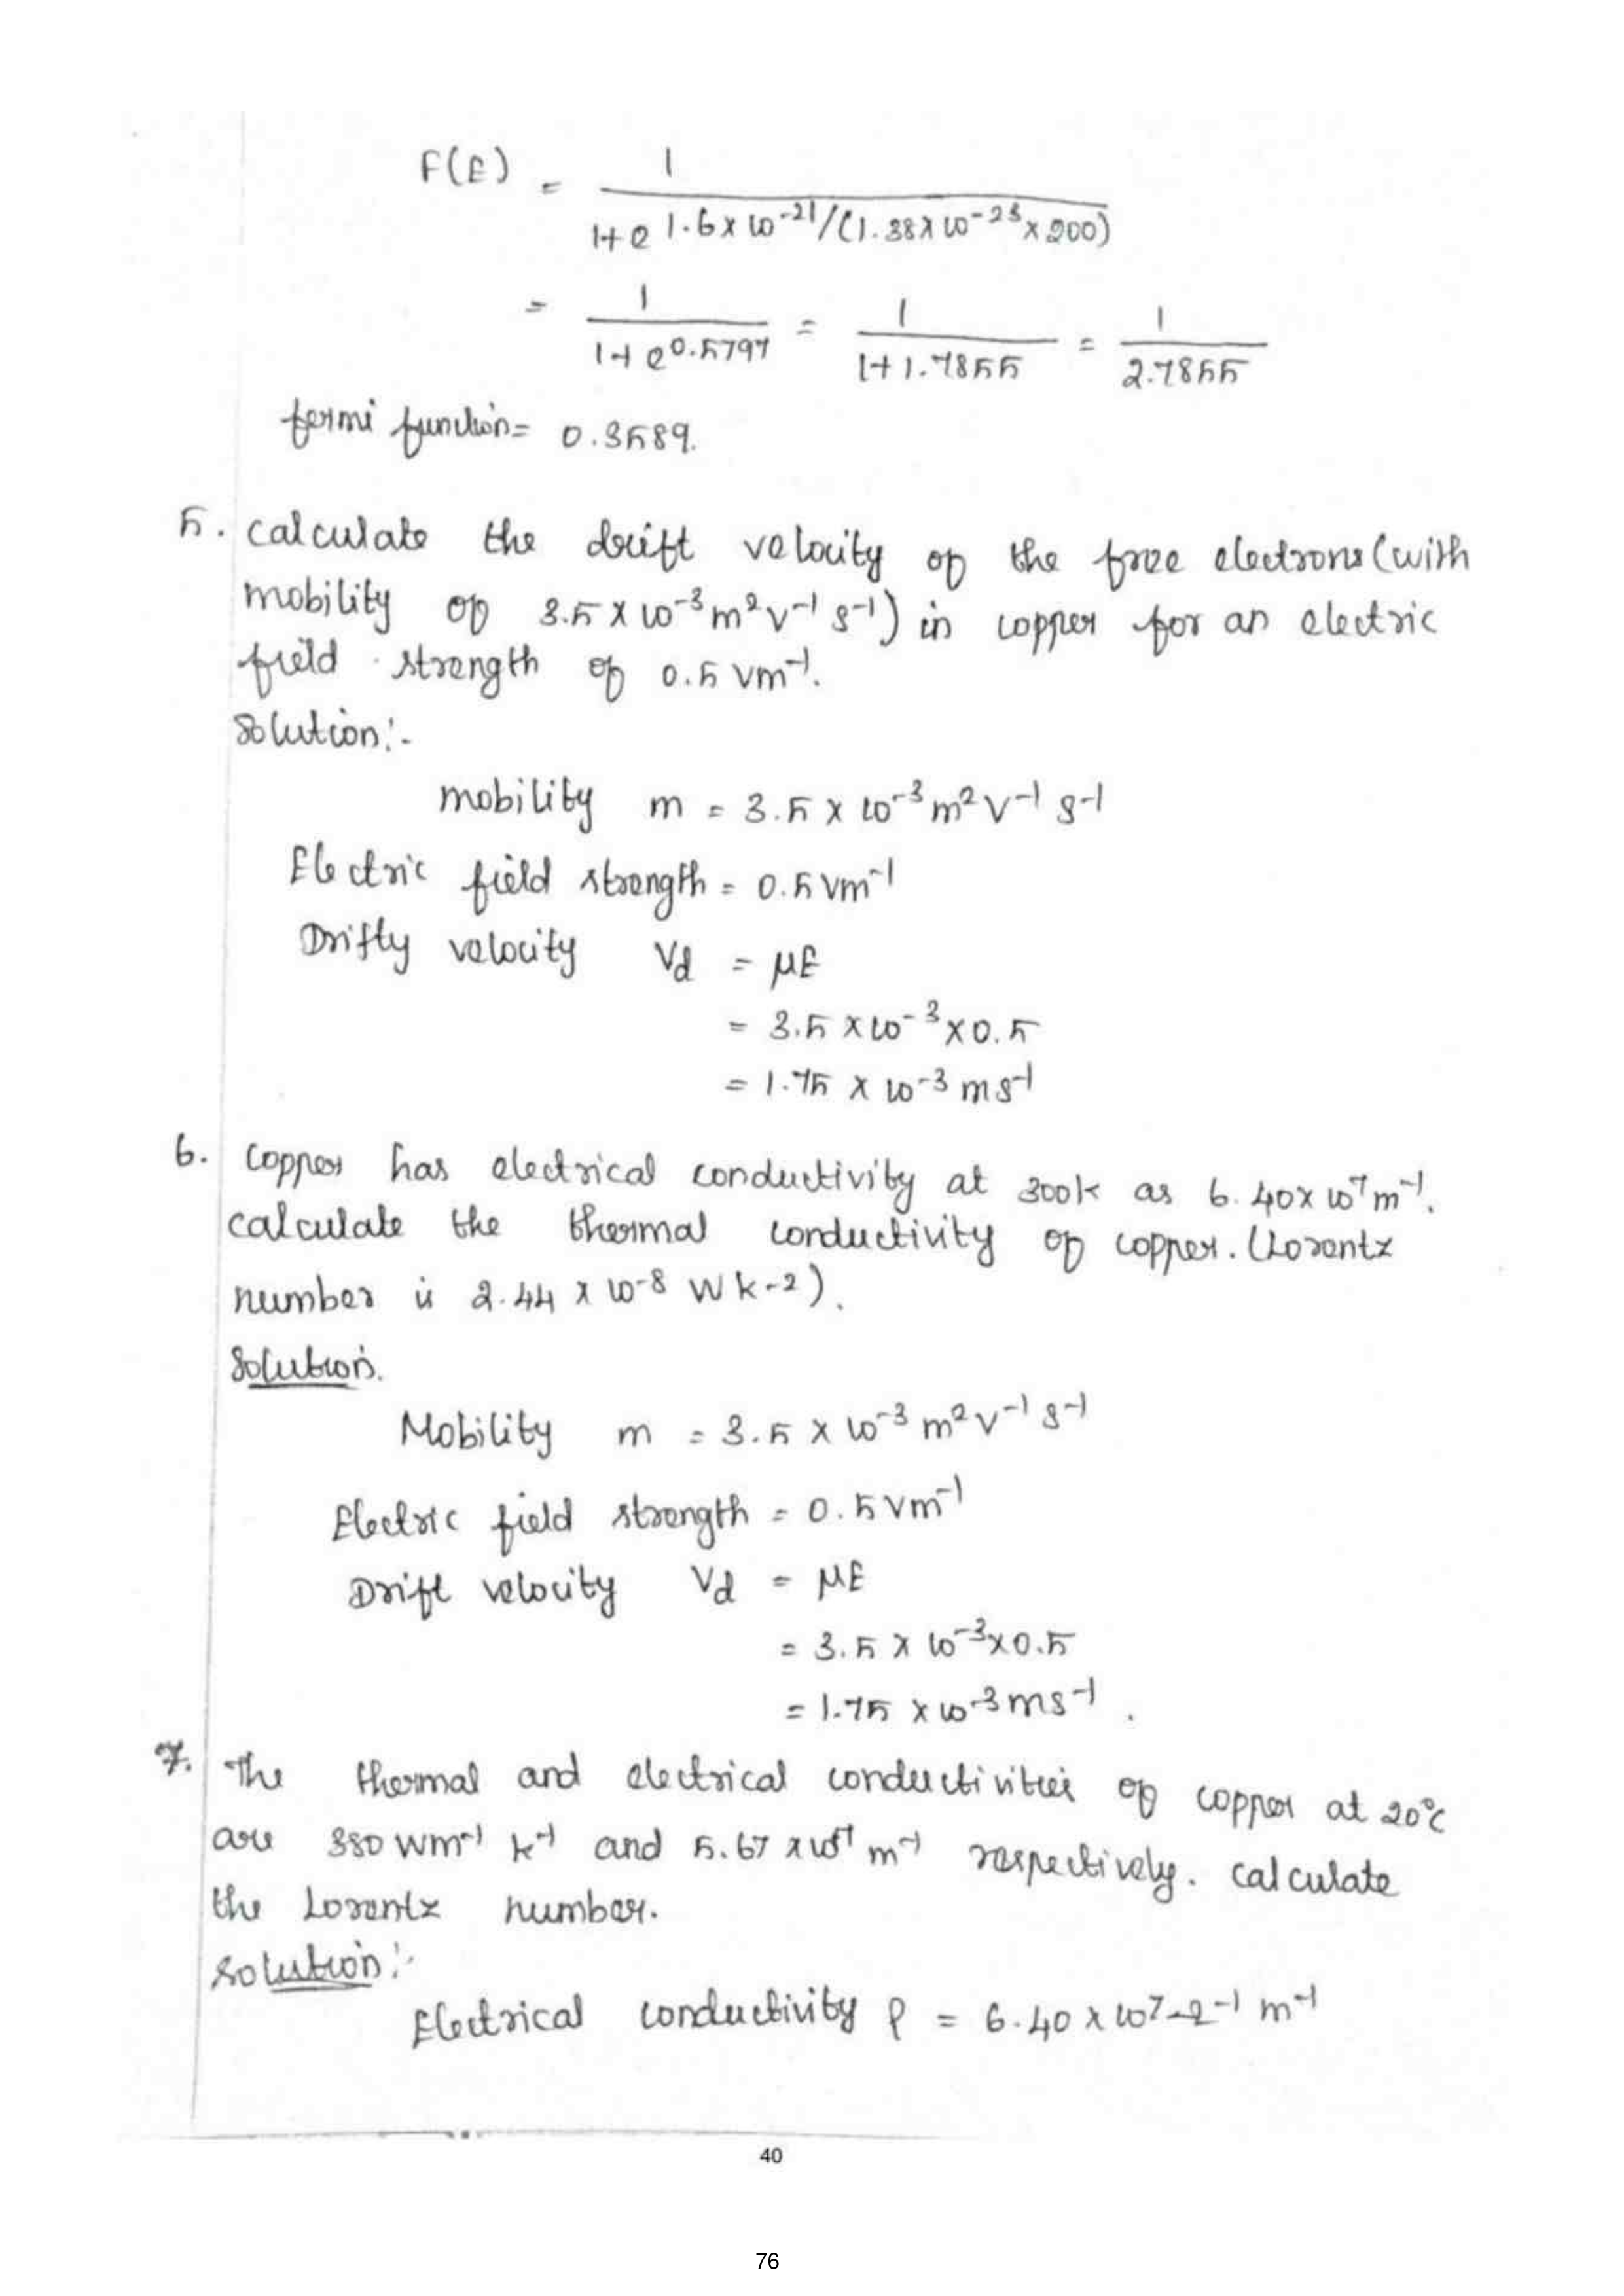 F(E) = 1
1+e 1.6x10-21/(1.38x10-23x200)
= 1 / 1+e0.5797 = 1 / 1+1.7855 = 1 / 2.7855
fermi function= 0.3589.
5. calculate the drift velocity of the free electrons (with
mobility of 3.5 x 10-3 m2 v-1 s-1) in copper for an electric
field strength of 0.5 vm-1.
Solution:-
mobility m = 3.5 x 10-3 m2 v-1 s-1
Electric field strength = 0.5 vm-1
Drifty velocity Vd = μE
= 3.5 x 10-3 x 0.5
= 1.75 x 10-3 ms-1
6. Copper has electrical conductivity at 300k as 6.40x107 m-1.
calculate the thermal conductivity of copper. (Lorentz
number is 2.44 x 10-8 W k-2).
Solution.
Mobility m = 3.5 x 10-3 m2 v-1 s-1
Electric field strength = 0.5 vm-1
Drift velocity Vd = μE
= 3.5 x 10-3x0.5
= 1.75 x 10-3 ms-1.
7. The thermal and electrical conductivities of copper at 20°c
are 380 wm-1 k-1 and 5.67 x 107 m-1 respectively. calculate
the Lorentz number.
Solution:-
Electrical conductivity ρ = 6.40 x 107 Ω-1 m-1
40
76